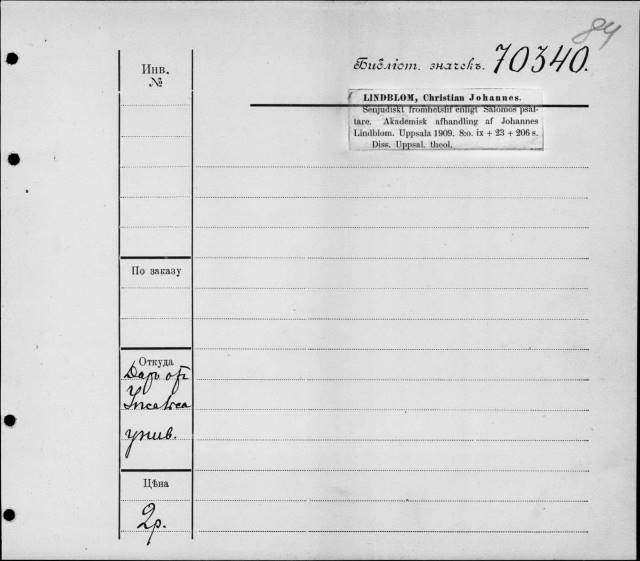 84
Библіот. значекъ. 70340.
Инв.
№
LINDBLOM, Christian Johannes.
Senjudiskt fromhetslif enligt Salomos psal-
tare. Akademisk afhandling af Johannes
Lindblom. Uppsala 1909. 8:o. ix + 23 + 206 s.
Diss. Uppsal. theol.
По заказу
Откуда
Даръ отъ
Упсальск
унив.
Цѣна
2р.